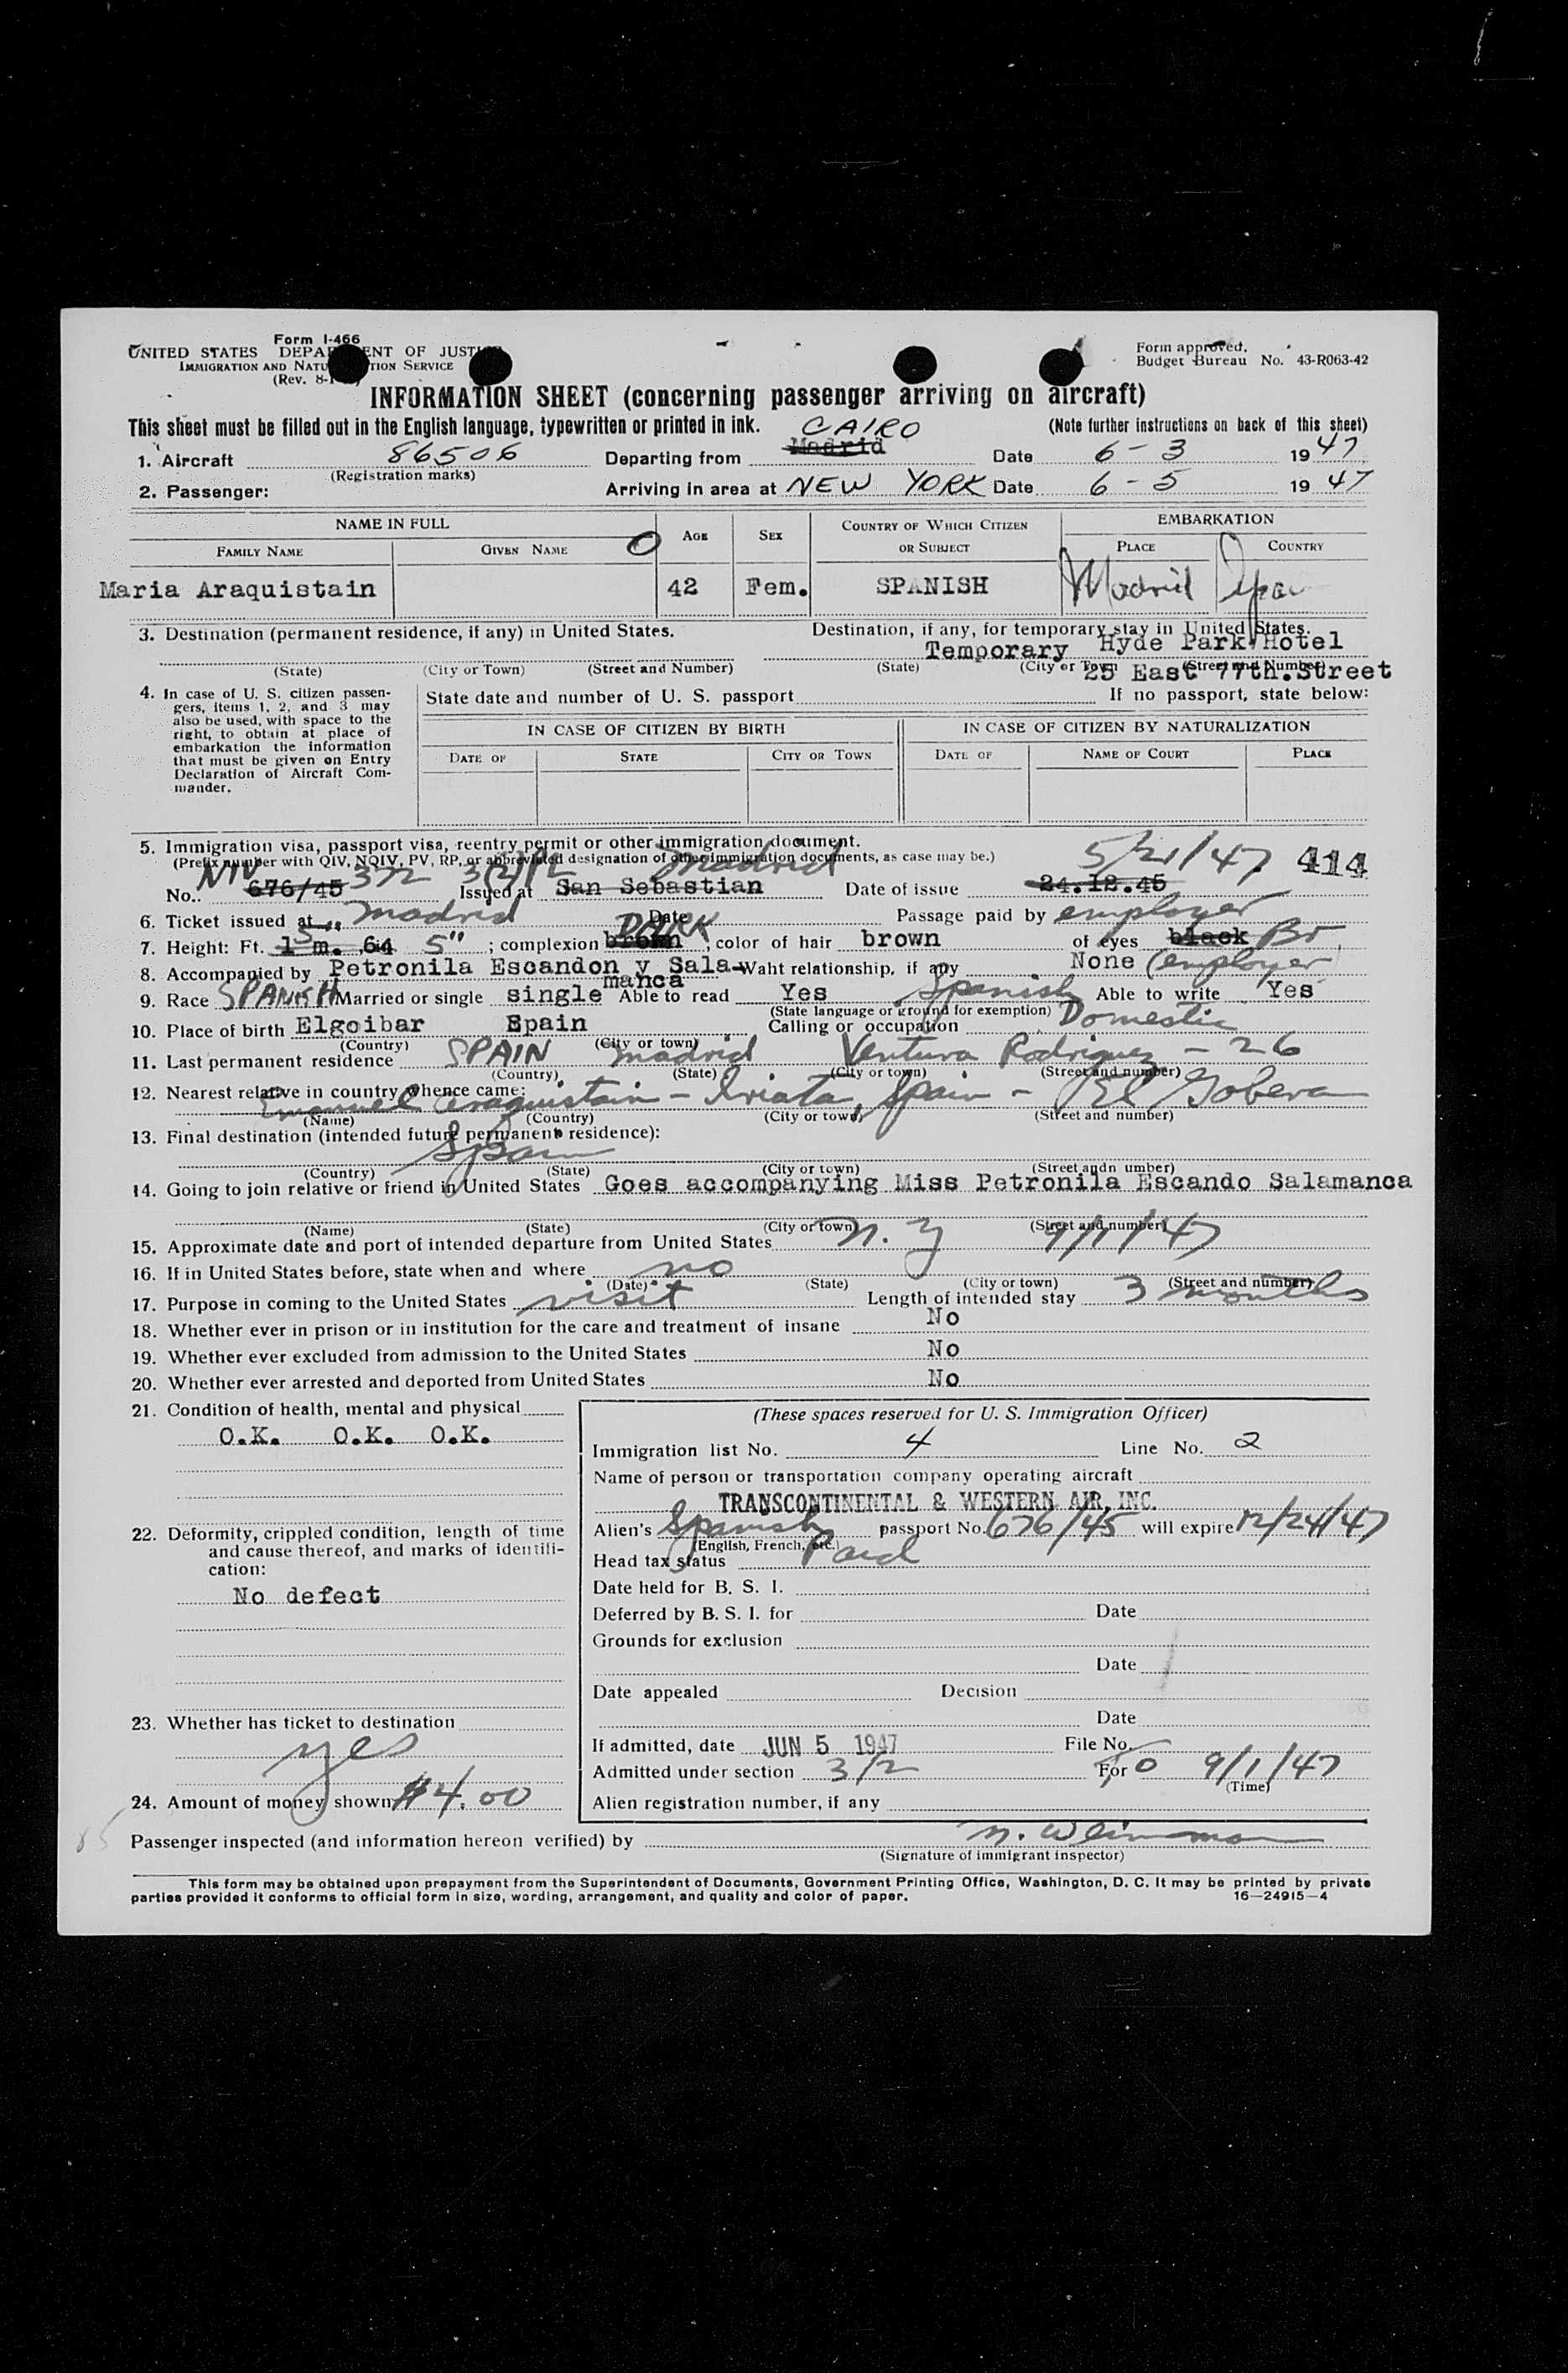 Form I-466
UNITED STATES DEPA ENT OF JUST
IMMIGRATION AND NATU TION SERVICE
(Rev. 8-1
Form approved.
Budget Bureau No. 43-R063-42
INFORMATION SHEET (concerning passenger arriving on aircraft)
This sheet must be filled out in the English language, typewritten or printed in ink. (Note further instructions on back of this sheet)
CAIRO
1. Aircraft 86506 Departing from Madrid Date 6-3 1947
(Registration marks)
2. Passenger: Arriving in area at NEW YORK Date 6-5 1947
NAME IN FULL AGE SEX COUNTRY OF WHICH CITIZEN OR SUBJECT EMBARKATION
FAMILY NAME GIVEN NAME PLACE COUNTRY
Maria Araquistain 42 Fem. SPANISH Madrid Spain
3. Destination (permanent residence, if any) in United States. Destination, if any, for temporary stay in United States.
Temporary Hyde Park Hotel
(State) (City or Town) (Street and Number) (State) (City or Town (Street and Number)
25 East 77th.Street
4. In case of U. S. citizen passengers, items 1, 2, and 3 may also be used, with space to the right, to obtain at place of embarkation the information that must be given on Entry Declaration of Aircraft Commander.
State date and number of U. S. passport If no passport, state below:
IN CASE OF CITIZEN BY BIRTH IN CASE OF CITIZEN BY NATURALIZATION
DATE OF STATE CITY OR TOWN DATE OF NAME OF COURT PLACE
5. Immigration visa, passport visa, reentry permit or other immigration document.
(Prefix number with QIV, NQIV, PV, RP, or abbreviated designation of other immigration documents, as case may be.)
NIV 372 3(2) Madrid 5/21/47 414
No. 676/45 Issued at San Sebastian Date of issue 24.12.45
6. Ticket issued at Madrid Date Passage paid by employer
7. Height: Ft. 1 m. 64 5 5" ; complexion brown DARK , color of hair brown of eyes black Br
8. Accompanied by Petronila Escandon y Sala-manca Waht relationship, if any None (employer)
9. Race SPANISH Married or single single Able to read Yes Spanish Able to write Yes
(State language or ground for exemption)
10. Place of birth Elgoibar Spain Calling or occupation Domestic
(Country) (City or town)
11. Last permanent residence SPAIN Madrid Ventura Rodriguez - 26
(Country) (State) (City or town) (Street and number)
12. Nearest relative in country whence came:
Emanuel Araquistain - Spain - El Gobera
(Name) (Country) (City or town) (Street and number)
13. Final destination (intended future permanent residence):
Spain
(Country) (State) (City or town) (Street andn umber)
14. Going to join relative or friend in United States Goes accompanying Miss Petronila Escando Salamanca
(Name) (State) (City or town) (Street and number)
15. Approximate date and port of intended departure from United States N.Y 9/1/47
16. If in United States before, state when and where no
(Date) (State) (City or town) (Street and number)
17. Purpose in coming to the United States visit Length of intended stay 3 months
18. Whether ever in prison or in institution for the care and treatment of insane No
19. Whether ever excluded from admission to the United States No
20. Whether ever arrested and deported from United States No
21. Condition of health, mental and physical
O.K. O.K. O.K.
22. Deformity, crippled condition, length of time and cause thereof, and marks of identification:
No defect
23. Whether has ticket to destination
yes
24. Amount of money shown $4.00
(These spaces reserved for U. S. Immigration Officer)
Immigration list No. 4 Line No. 2
Name of person or transportation company operating aircraft
TRANSCONTINENTAL & WESTERN AIR, INC.
Alien's Spanish passport No. 676/45 will expire 12/24/47
(English, French, etc.)
Head tax status Paid
Date held for B. S. I.
Deferred by B. S. I. for Date
Grounds for exclusion
Date
Date appealed Decision
Date
If admitted, date JUN 5 1947 File No.
Admitted under section 3/2 For to 9/1/47
(Time)
Alien registration number, if any
Passenger inspected (and information hereon verified) by
(Signature of immigrant inspector)
This form may be obtained upon prepayment from the Superintendent of Documents, Government Printing Office, Washington, D. C. It may be printed by private
parties provided it conforms to official form in size, wording, arrangement, and quality and color of paper. 16—24915-4